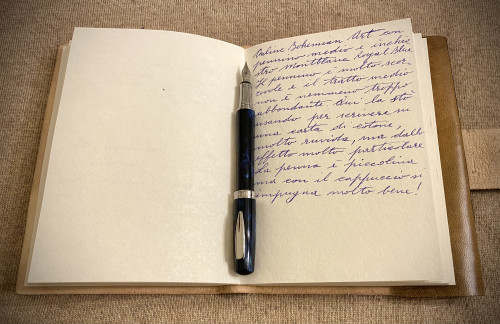 Online Bohemian Art con
pennino medio e inchio
stro Montblanc Royal Blue
Il pennino è molto scor
revole e il tratto medio
non è nemmeno troppo
abbondante. Qui la sto
usando per scrivere su
una carta di cotone,
molto ruvida, ma dall'
effetto molto particolare
La penna è piccolina
ma con il cappuccio si
impugna molto bene!